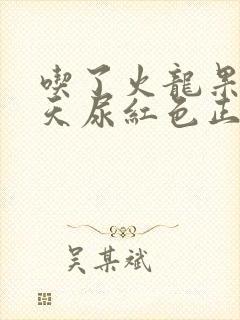 喫了火龍果
天尿紅色正
吴某斌